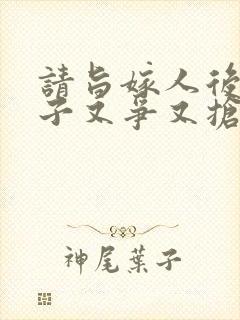 請旨嫁人後
子又爭又搶
神尾葉子